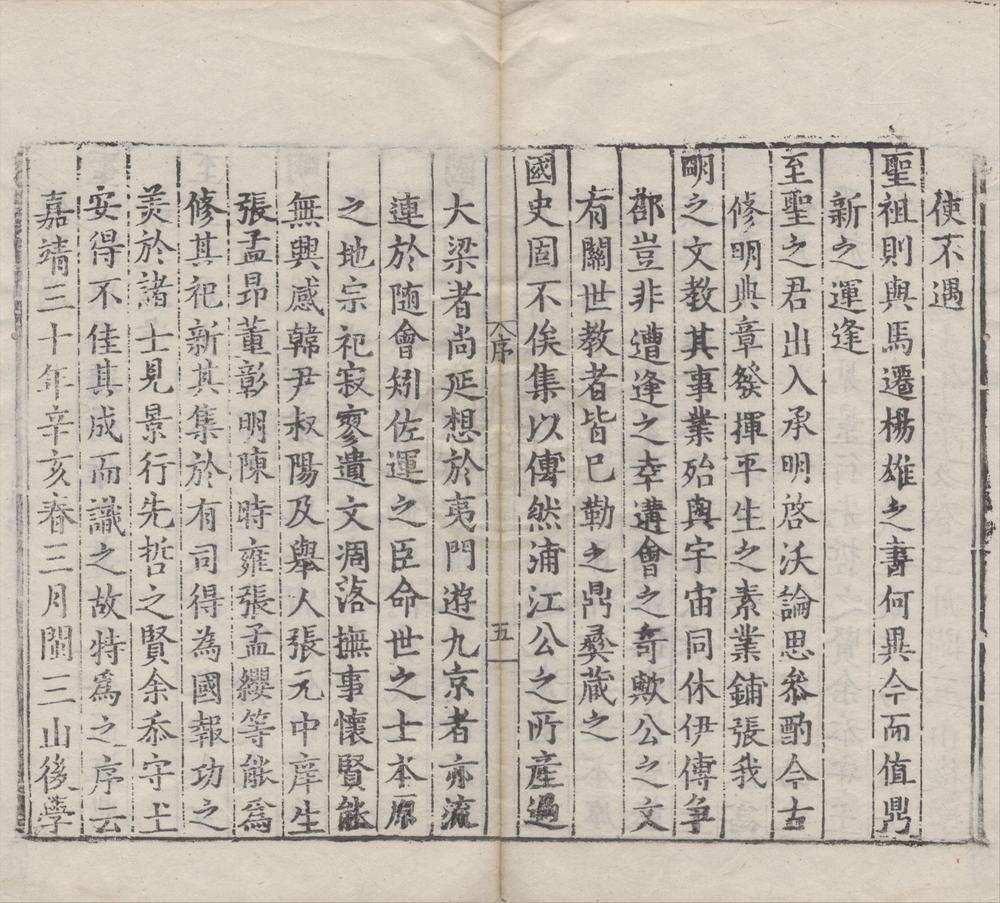 使不遇
聖祖則與馬遷楊雄之書何異今而值鼎
新之運逢
至聖之君出入承明啓沃論思叅酌今古
修明典章發揮平生之素業鋪張我
明之文教其事業殆與宇宙同休伊傅爭
郡豈非遭逢之幸遘會之竒歟公之文
有關世教者皆已勒之鼎彜藏之
國史固不俟集以傳然浦江公之所產過
序
五
大梁者尚延想於夷門遊九京者亦流
連於随會矧佐運之臣命世之士本原
之地宗祀寂寥遺文凋落撫事懷賢能
無興感韓尹叔陽及舉人張元中庠生
張孟昂董彰明陳時雍張孟纓等能爲
修其祀新其集於有司得為國報功之
美於諸士見景行先哲之賢余忝守土
安得不佳其成而識之故特爲之序云
嘉靖三十年辛亥春三月閩三山後學